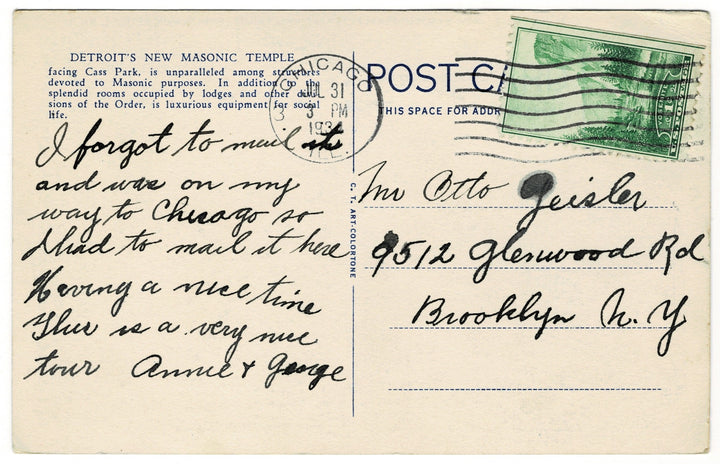 DETROIT'S NEW MASONIC TEMPLE
facing Cass Park, is unparalleled among structures
devoted to Masonic purposes. In addition to the
splendid rooms occupied by lodges and other divi-
sions of the Order, is luxurious equipment for social
life.
I forgot to mail it
and was on my
way to Chicago so
I had to mail it here
Having a nice time
This is a very nice
tour Annie & George
C. T. ART-COLORTONE
CHICAGO
JUL 31
3 PM
ILL.
POST C
THIS SPACE FOR ADDR
Mr Otto Geisler
9512 Glenwood Rd
Brooklyn N. Y